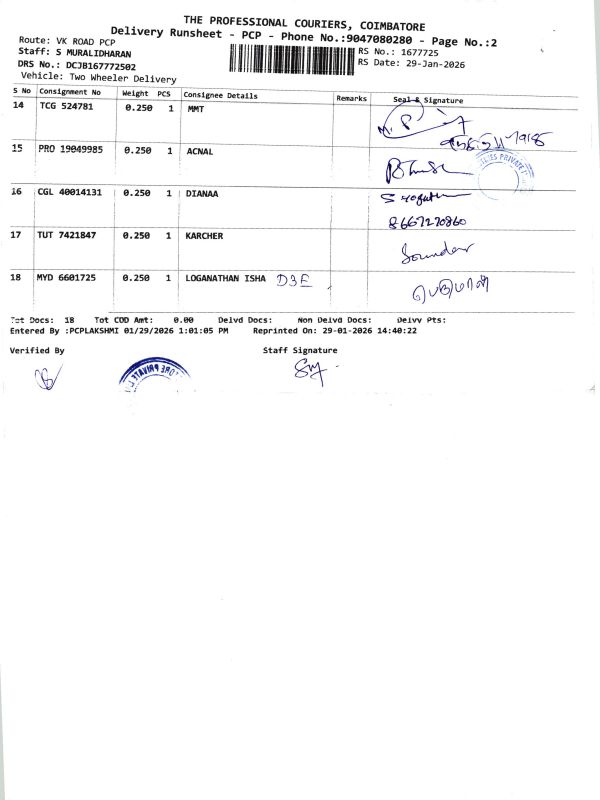 THE PROFESSIONAL COURIERS, COIMBATORE
Delivery Runsheet - PCP - Phone No.:9047080280 - Page No.:2
Route: VK ROAD PCP
Staff: S MURALIDHARAN
RS No.: 1677725
DRS No.: DCJB167772502
RS Date: 29-Jan-2026
Vehicle: Two Wheeler Delivery
S No Consignment No Weight PCS Consignee Details Remarks Seal & Signature
14 TCG 524781 0.250 1 MMT M. P
15 PRO 19049985 0.250 1 ACNAL
16 CGL 40014131 0.250 1 DIANAA
8667270860
17 TUT 7421847 0.250 1 KARCHER Sounder
18 MYD 6601725 0.250 1 LOGANATHAN ISHA D3E பெருமாள்
Tot Docs: 18 Tot COD Amt: 0.00 Delvd Docs: Non Delvd Docs: Delvv Pts:
Entered By :PCPLAKSHMI 01/29/2026 1:01:05 PM Reprinted On: 29-01-2026 14:40:22
Verified By Staff Signature